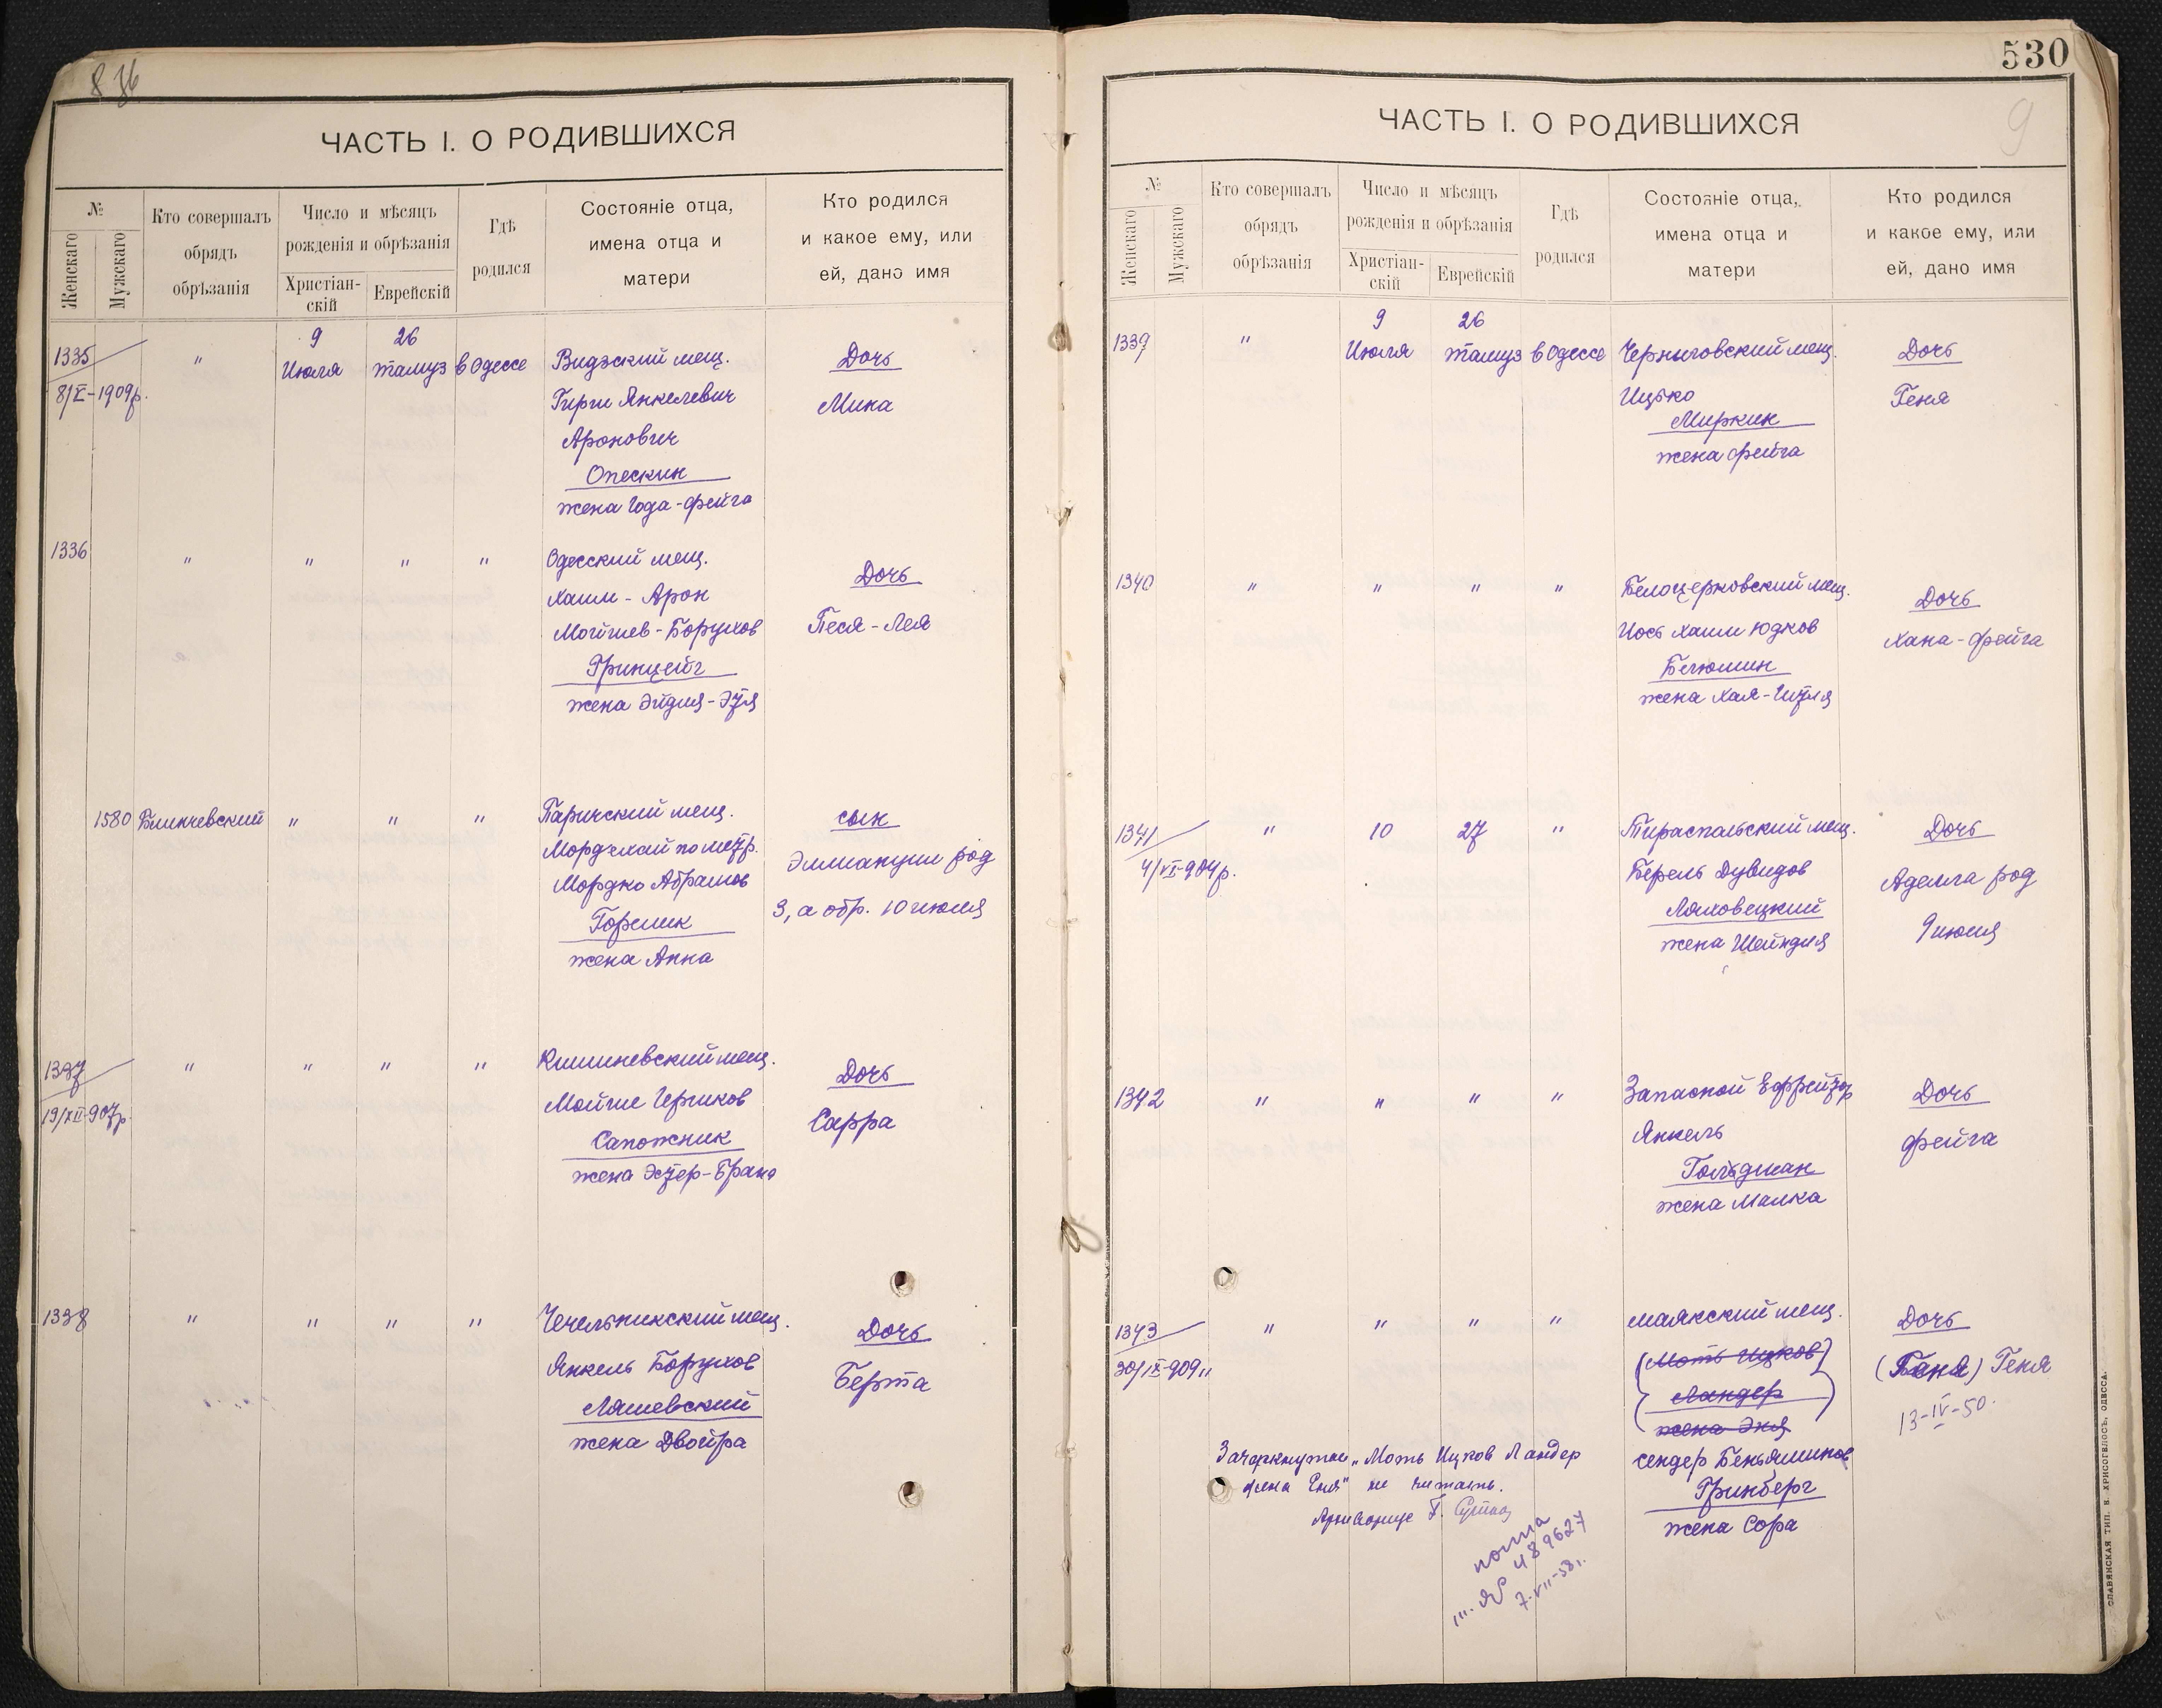 836
ЧАСТЬ I. О РОДИВШИХСЯ
№
Женскаго
Мужскаго
Кто совершалъ обрядъ обрѣзанія
Число и мѣсяцъ рожденія и обрѣзанія
Христіан-скій
Еврейскій
Гдѣ родился
Состояніе отца, имена отца и матери
Кто родился и какое ему, или ей, дано имя
1335 " 9 Июля 26 тамуз в Одессе Видзский мещ. Дочь
8/X-1909р.
Гирш Янкелевич Мина
Аронович
Опескин
жена Года-Фейга
1336 " " " " Одесский мещ. Дочь
Хаим-Арон
Мойшев-Борухов Песя-Лея
Гринцейг
жена Эйдля-Этя
1580 " " " Паричский мещ. сын
Мордхай по метр.
Мордко Абрамов Эммануил род
Горелик 3, а обр. 10 июля
жена Анна
1337 " " " " Кишиневский мещ. Дочь
19/XII-907р.
Мойше Гершков Сарра
Сапожник
жена Эстер-Брана
1338 " " " " Чечельникский мещ. Дочь
Янкель Борухов Берта
Ляшевский
жена Двойра
530
9
ЧАСТЬ I. О РОДИВШИХСЯ
№
Женскаго
Мужскаго
Кто совершалъ обрядъ обрѣзанія
Число и мѣсяцъ рожденія и обрѣзанія
Христіан-скій
Еврейскій
Гдѣ родился
Состояніе отца, имена отца и матери
Кто родился и какое ему, или ей, дано имя
1339 " 9 Июля 26 тамуз в Одессе Черниговский мещ. Дочь
Ицько Геня
Миркин
жена Фейга
1340 " " " " Белоцерковский мещ. Дочь
Иось Хаим Юдков Хана-Фейга
жена Хая-
1341 " 10 27 " Тираспольский мещ. Дочь
4/VI-904р.
Берель Дувидов Аделла род
Ляховецкий 9 июля
жена Шейндля
1342 " " " " Запасной Ефрейтор Дочь
Янкель Фейга
Гольдман
жена Малка
1343 " " " " маякский мещ. Дочь
30/IX-909
(Моть Ицков) (Баня) Геня
Ландер 13-IV-50.
жена Эня
сендер Беньяминов
Гринберг
жена Сора
Зачеркнутое „Моть Ицков Ландер
жена Еня" не читать.
Архивариус
489627
7-VII-58г.
СЛАВЯНСКАЯ ТИП. Н. ХРИСОГЕЛОСЪ, ОДЕССА.